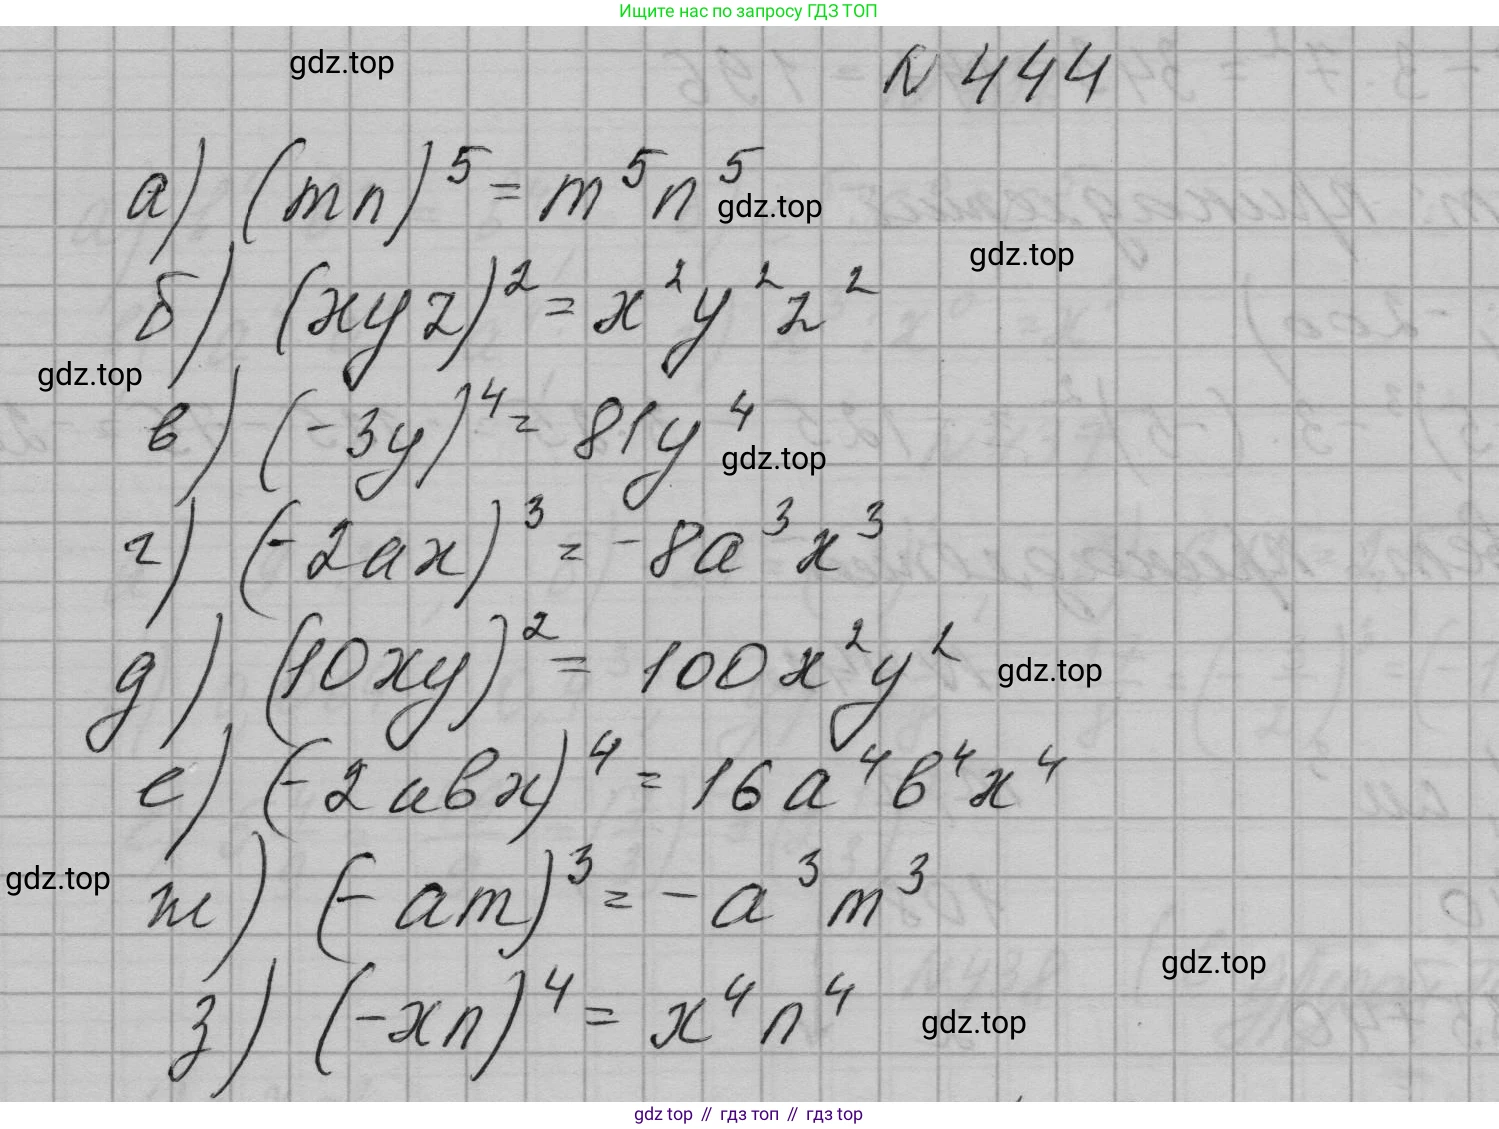 Ищите нас по запросу ГДЗ ТОП
gdz.top
N 444
а) (mn)⁵ = m⁵n⁵
gdz.top
gdz.top
б) (xyz)² = x²y²z²
gdz.top
в) (-3y)⁴ = 81y⁴
gdz.top
г) (-2ax)³ = -8a³x³
д) (10xy)² = 100x²y²
gdz.top
е) (-2abx)⁴ = 16a⁴b⁴x⁴
gdz.top
ж) (-am)³ = -a³m³
gdz.top
з) (-xn)⁴ = x⁴n⁴
gdz.top
gdz top // гдз топ // гдз top